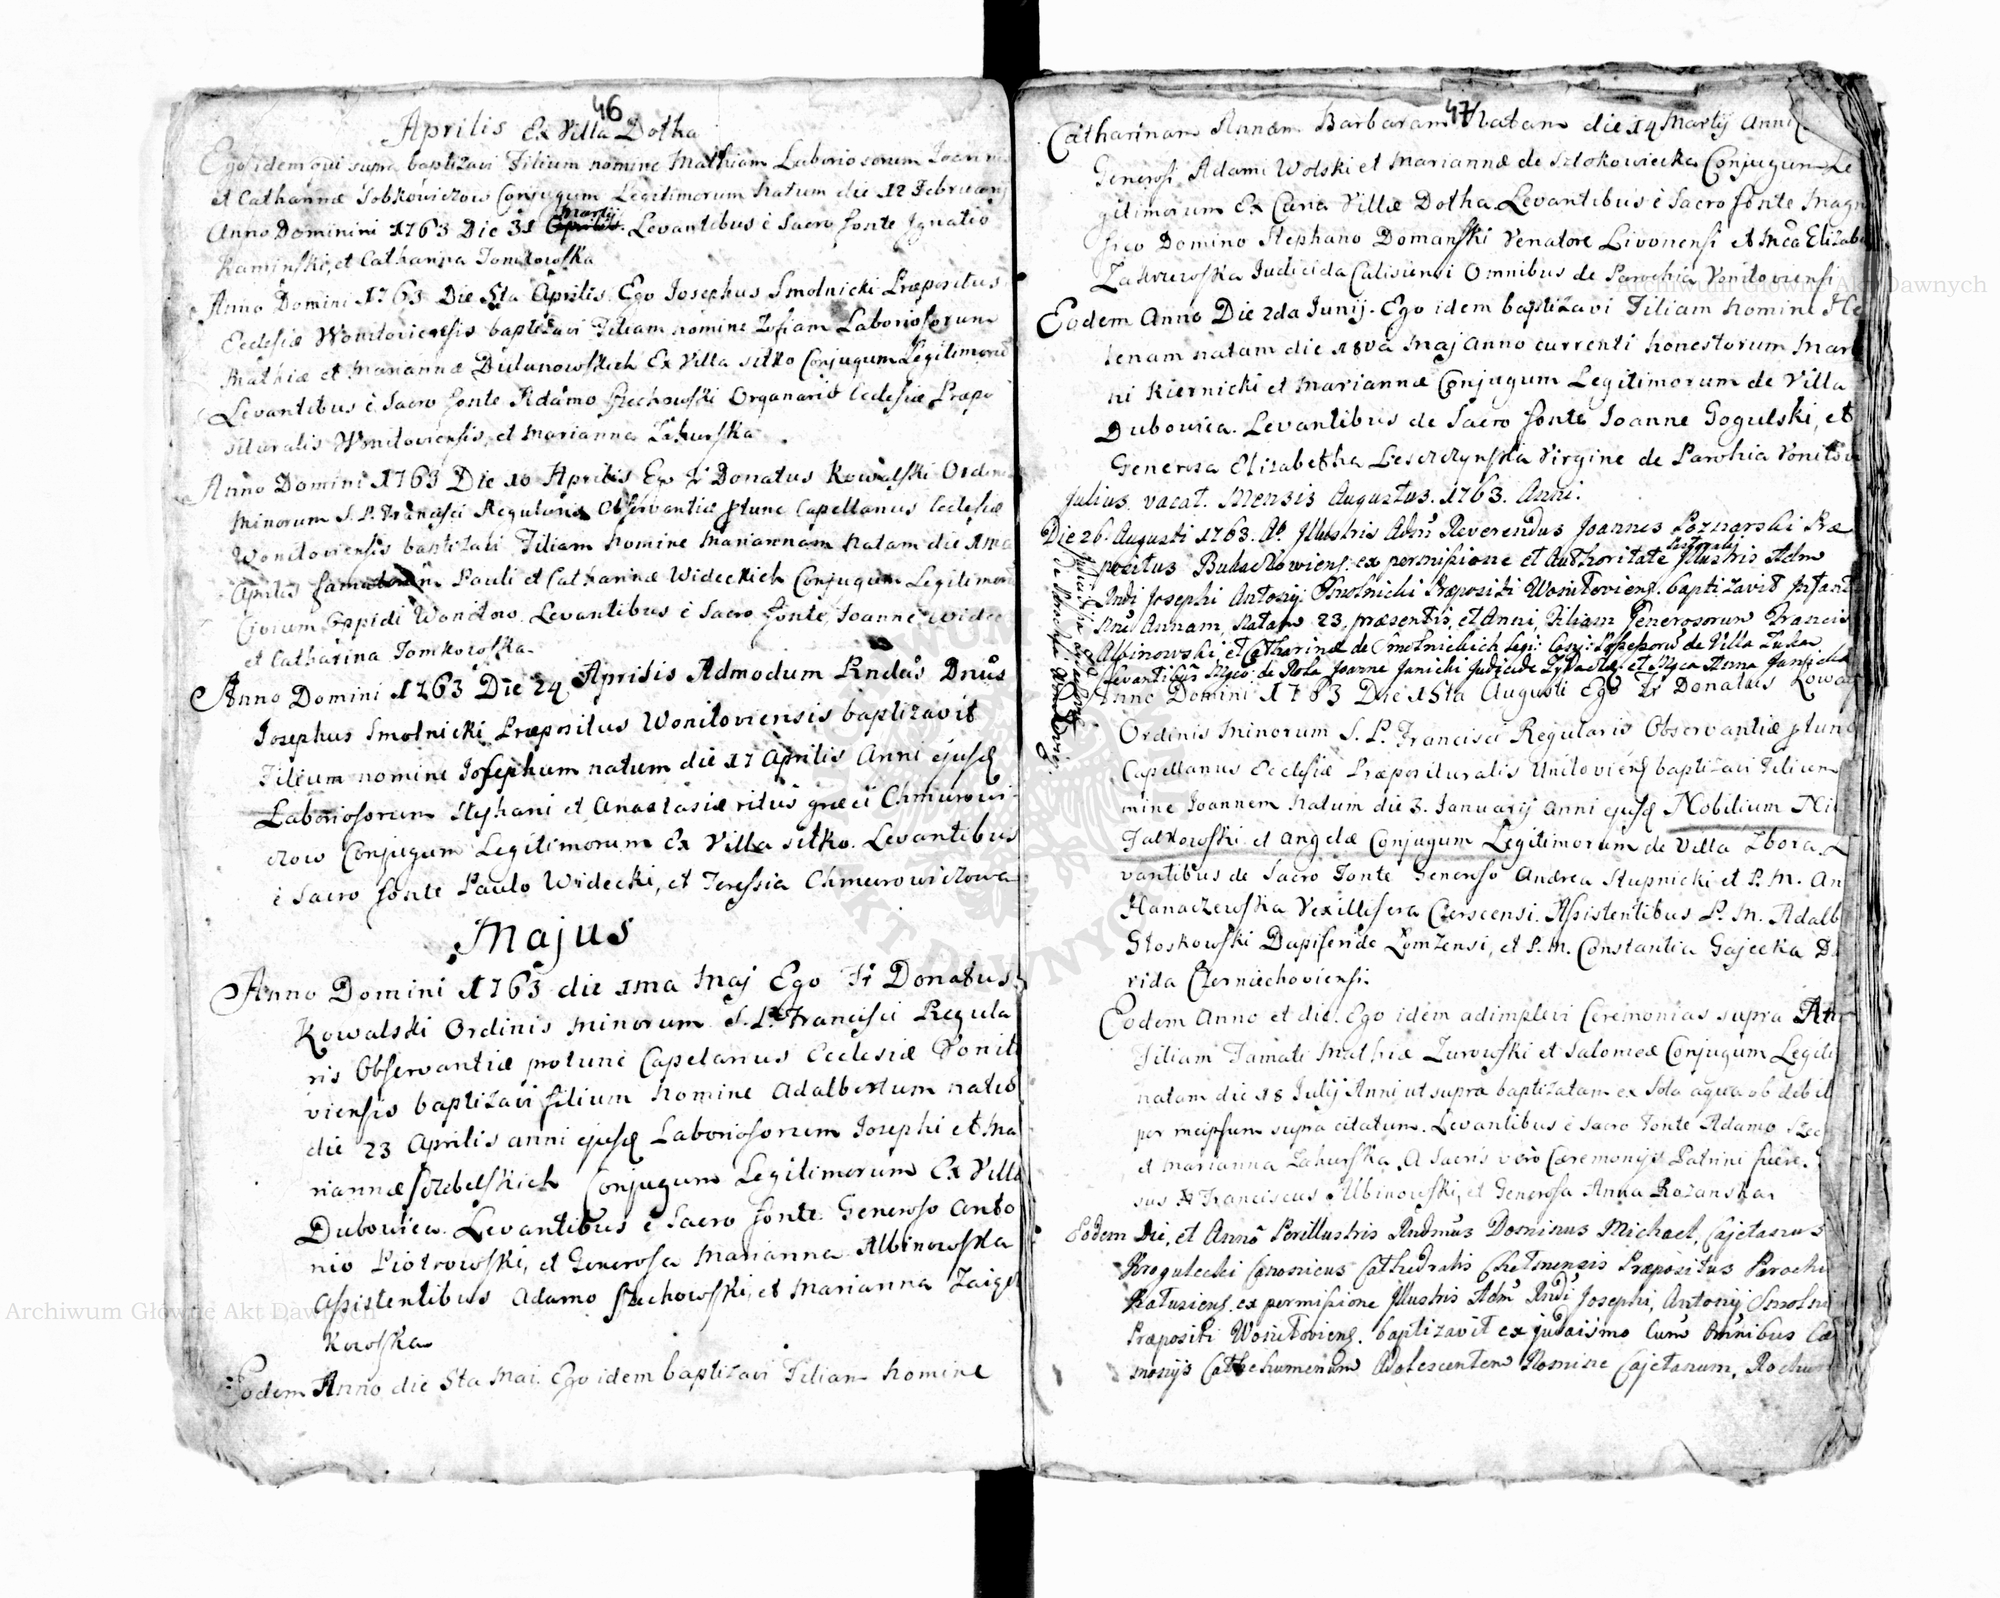 46
Aprilis Ex Villa Dołha
Ego idem qui supra baptizavi Filium nomine Mathiam Laboriosorum Joannis
et Catharinæ Sobkowiczow Conjugum Legitimorum Natum die 12 Februarij
Anno Dominini 1763 Die 31 Martij Levantibus è Sacro fonte Ignatio
Kaminski, et Catharina Tomkowska
Anno Domini 1763 Die 5ta Aprilis Ego Josephus Smolnicki Præpositus
Ecclesiæ Wonitoviensis baptizavi Filiam nomine Zofiam Laboriosorum
Mathiæ et Mariannæ Dulunowskich Ex Villa sitko Conjugum Legitimorū
Levantibus è Sacro fonte Adamo Szechowski Organario Ecclesiæ Præpo
situralis Wonitoviensis, et Marianna Zahurska
Anno Domini 1763 Die 10 Aprilis Ego Fr Donatus Kowalski Ordinis
Minorum S. P. Francisci Regularis Observantiæ ptunc Capellanus Ecclesiæ
Wonitoviensis baptizavi Filiam nomine Mariannam Natam die 1ma
Aprilis Pauli et Catharinæ Wideckich Conjugum Legitimorū
Civium Oppidi Wonitow. Levantibus è Sacro fonte, Joanne Widec
et Catharina Tomkowska
Anno Domini 1763 Die 24 Aprilis Admodum Rndūs Dnūs
Josephus Smolnicki Præpositus Wonitoviensis baptizavit
Filium nomine Josephum natum die 17 Aprilis Anni ejusq
Laboriosorum Stephani et Anastasiæ ritus græci Chmurowi-
czow Conjugum Legitimorum Ex Villa sitko. Levantibus
è Sacro fonte Paulo Widecki, et Teressia Chmurowiczowa
Majus
Anno Domini 1763 die 1ma Maj Ego Fr Donatus
Kowalski Ordinis Minorum S. P. Francisci Regula
ris Observantiæ protunc Capelanus Ecclesiæ Vonito
viensis baptizavi filium nomine Adalbertum natū
die 23 Aprilis anni ejusq Laboriosorum Josephi et Ma
riannæ Conjugum Legitimorum Ex Villa
Dubowica. Levantibus è Sacro fonte Generoso Anto
nio Piotrowski, et Generosa Marianna Albinowska
Assistentibus Adamo Szechowski, et Marianna
kowska
Eodem Anno die 5ta Mai. Ego idem baptizavi Filiam nomine
47
Catharinam Annam Barbaram Natam die 14 Martij Anni
Generosi Adami Wolski et Mariannæ de Conjugum Le
gitimorum Ex Curia Villæ Dołha Levantibus è Sacro fonte Magni
fico Domino Stephano Domanski Venatore Livonensi et Mca Elizabe
Zakrzewska Judicida Calisiensi Omnibus de Parochia Vonitoviensi
Eodem Anno Die 2da Junij. Ego idem baptizavi Filiam nomine He
lenam natam die 18va Maj Anno currenti honestorum Marti
ni Kiernicki et Mariannæ Conjugum Legitimorum de Villa
Dubowica. Levantibus de Sacro fonte Joanne Gogulski, et
Generosa Elizabetha Lesczczynska Virgine de Parohia Vonitov
Julius vacat. Mensis Augustus. 1763. Anni.
Die 26. Augusti 1763. Ao Illustris Adm Reverendus Joannes Poznarski Præ
positus ex permissione et Authoritate Illustris Adm
Rndi Josephi Antonij Smolnicki Præpositi Wonitoviens. baptizavit Infant
Annam, Natam 23, præsentis, et Anni, Filiam Generosorum Francis
Albinowski, et Catharinæ de Smolnickich Legi: Conj: de Villa
Levantibus de Joanne Janicki et Mgca Anna Janicka
Anno Domini 1763 Die 15ta Augusti Ego Fr Donatus Kowal
Ordinis Minorum S. P. Francisci Regularis Observantiæ ptunc
Capellanus Ecclesiæ Præposituralis baptizavi Filium
mine Joannem Natum die 3. Januarij anni ejusq Nobilium Ni
Falkowski et Angelæ Conjugum Legitimorum de Villa Zbora. L
vantibus de Sacro Fonte Generoso Andrea Stupnicki et P. M. An
Hanaczewska Vexillifera Czerscensi. Assistentibus P. M. Adalb
Stoskowski Dapiferide Lomzensi, et P. M. Constantia Gajecka D
rida Czerniechoviensi.
Eodem Anno et die. Ego idem adimplevi Ceremonias supra
Filiam Famati Mathiæ Zurowski et Salomeæ Conjugum Legiti
natam die 18 Julij Anni ut supra baptizatam ex sola aqua ob debil
per meipsum supra citatum. Levantibus è Sacro Fonte Adamo Szec
et Marianna Zahurska. A Sacris vero Cæremonijs Patrini fuere.
sus Franciscus Albinowski, et Generosa Anna Rozanska
Eodem Die, et Anno Perillustris Rndmus Dominus Michael, Cajetanus
Krogulecki Canonicus Cathedralis Chelmensis Præpositus Parochi
ex permissione Illustris Adm Rndi Josephi, Antonij Smolni
Præpositi Wonitoviens. baptizavit ex judaismo Cum Omnibus Cæ
monijs Cathehumenum Adolescentem Nomine Cajetanum, Rochum
Archiwum Główne Akt Dawnych
Archiwum Główne Akt Dawnych
ARCHIWUM GŁÓWNE AKT DAWNYCH